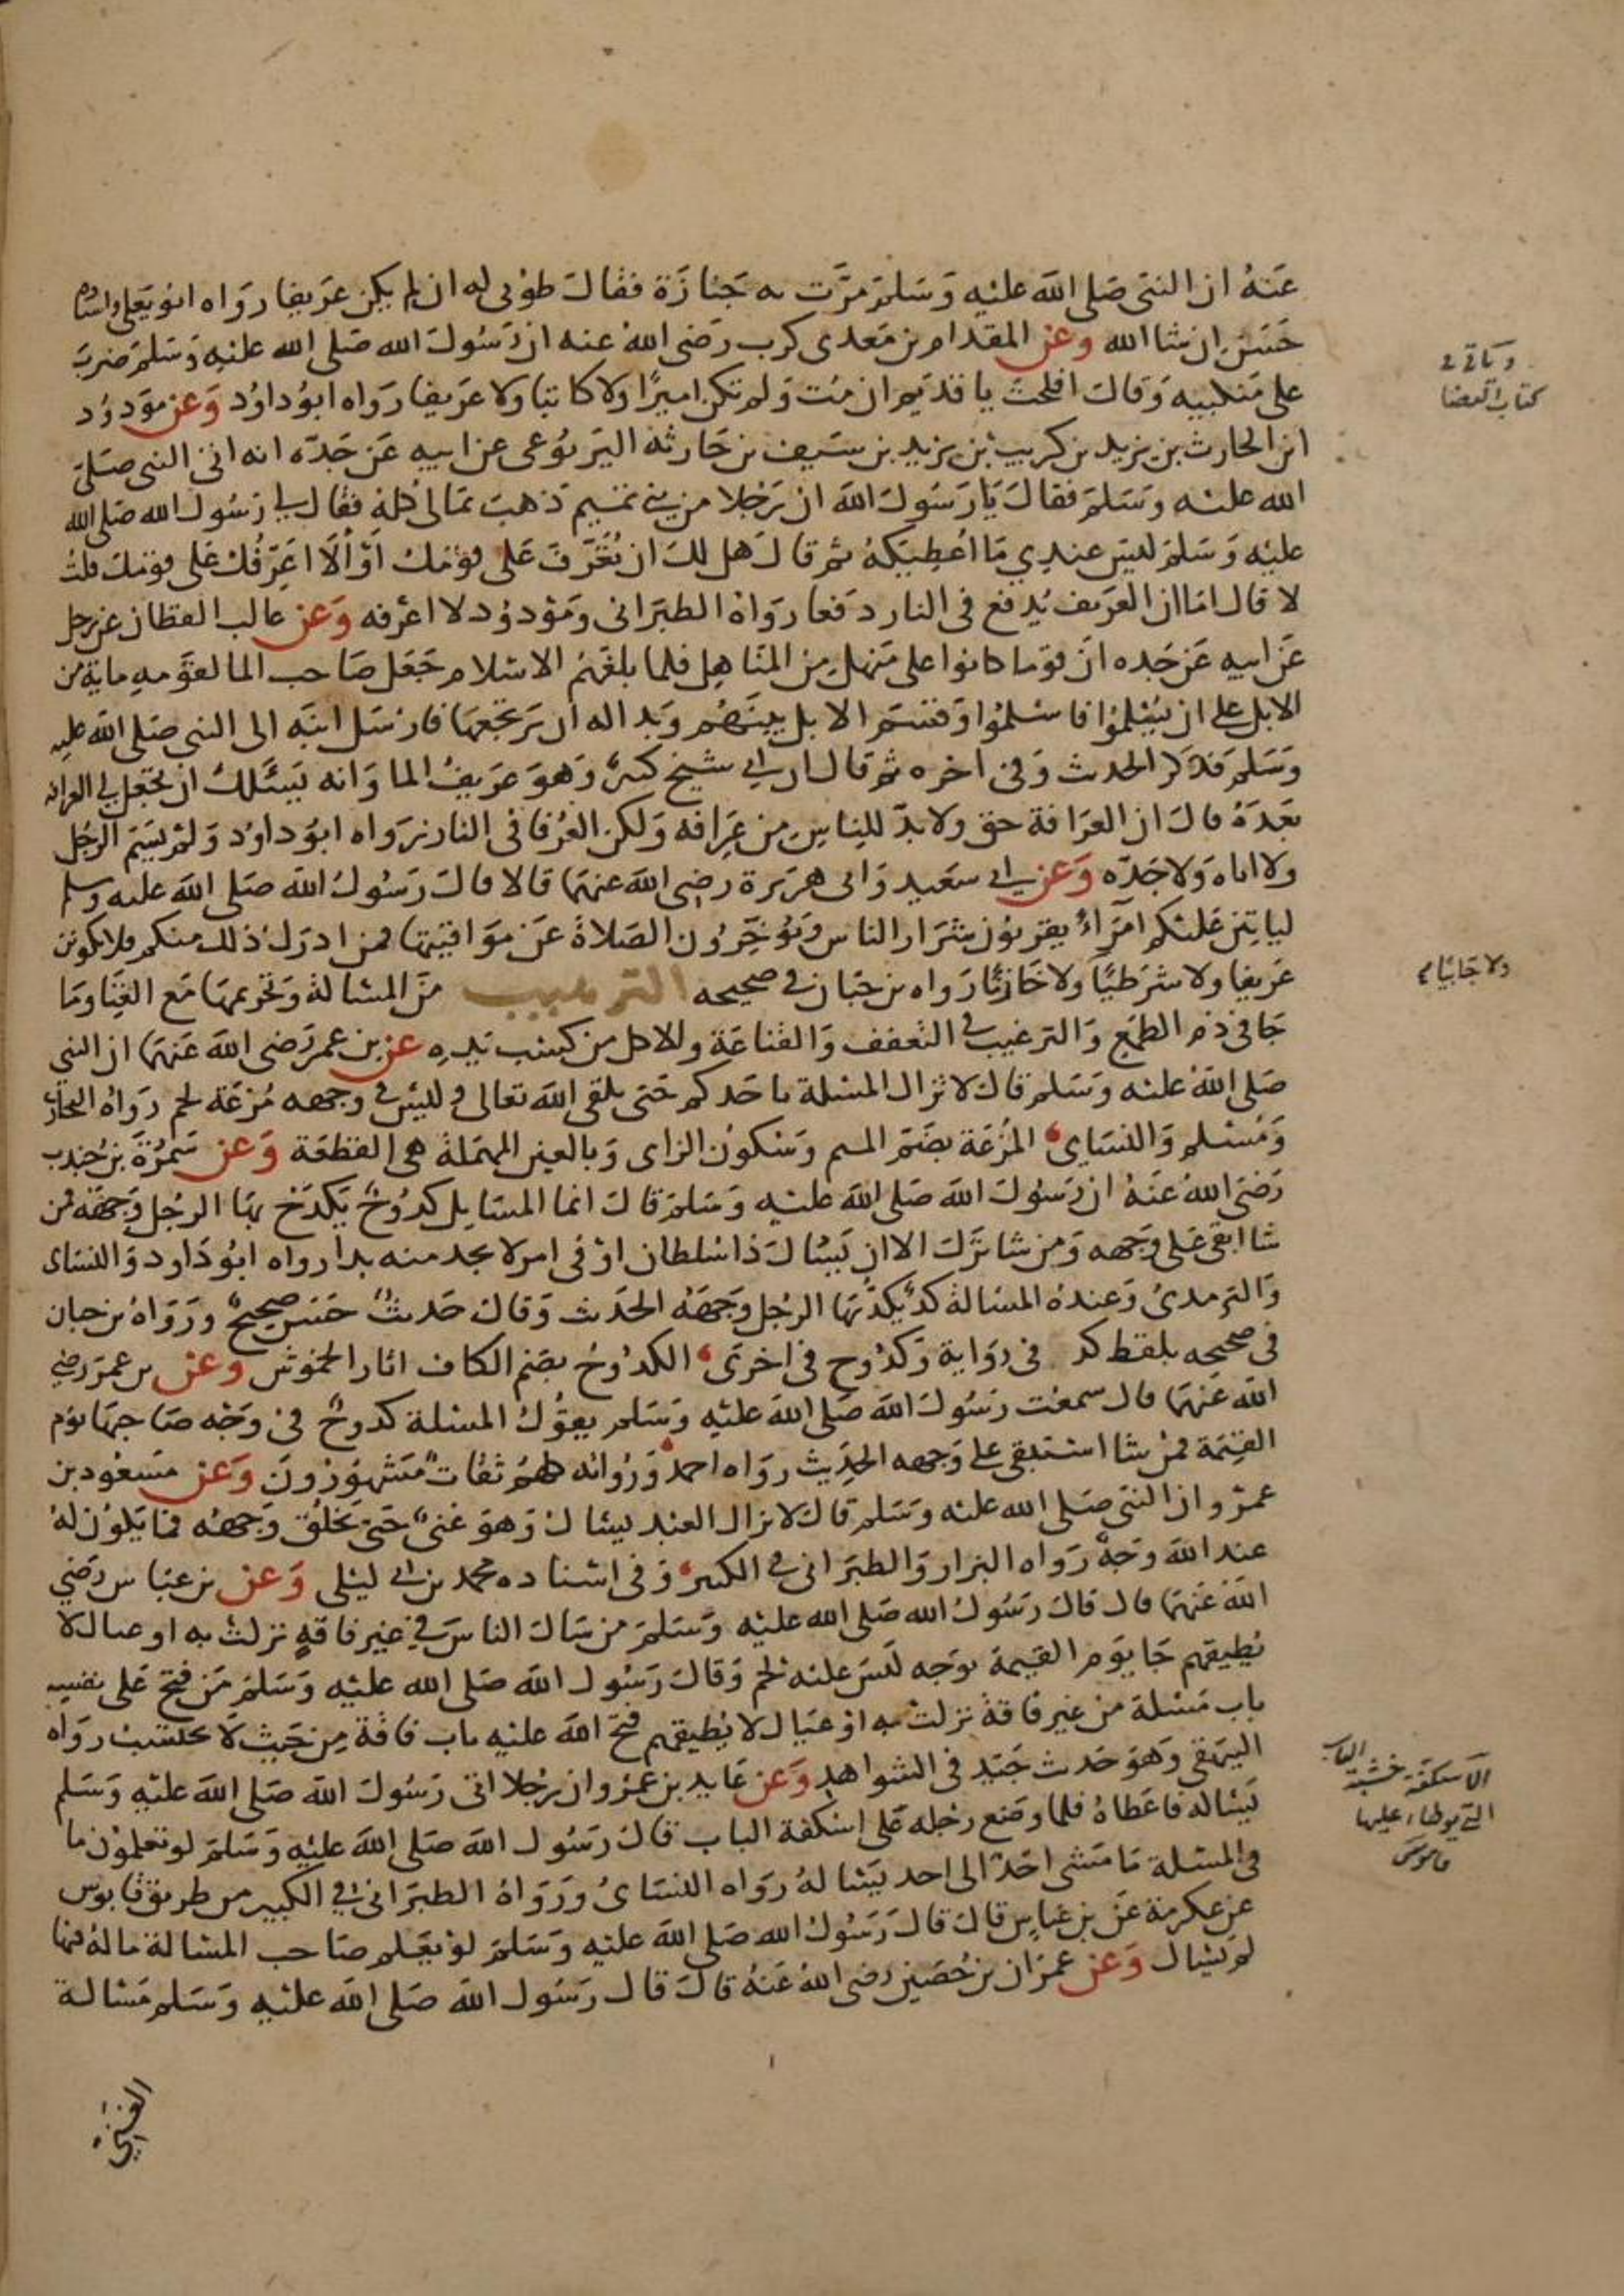 عنه ان النبي صلى الله عليه وسلم مرت به جنازة فقال طوبى له ان لم يكن عريفا رواه ابو يعلى واسناده
حسن ان شا الله وعن المقدام بن معدي كرب رضي الله عنه ان رسول الله صلى الله عليه وسلم ضرب
على منكبيه وقال افلحت يا قديم ان مت ولم تكن اميرا ولا كاتبا ولا عريفا رواه ابو داود وعن مودود
ابن الحارث بن يزيد بن كريب بن يزيد بن سيف بن حارثة اليربوعي عن ابيه عن جده انه اتى النبي صلى
الله عليه وسلم فقال يا رسول الله ان رجلا من بني تميم ذهب بمالي كله فقال لي رسول الله صلى الله
عليه وسلم ليس عندي ما اعطيكه ثم قال هل لك ان تعرف على قومك او الا اعرفك على قومك قلت
لا قال اما ان العريف يدفع في النار دفعا رواه الطبراني ومودود لا اعرفه وعن غالب القطان عن رجل
عن ابيه عن جده ان قوما كانوا على منهل من المناهل فلما بلغهم الاسلام جعل صاحب الما لقومه ماية من
الابل على ان يسلموا فاسلموا وقسم الابل بينهم وبدا له ان يرتجعها فارسل ابنه الى النبي صلى الله عليه
وسلم فذكر الحديث وفي اخره ثم قال ان ابي شيخ كبير وهو عريف الما وانه يسئلك ان تجعل لي العرافة
بعده قال ان العرافة حق ولا بد للناس من عرافة ولكن العرفا في النار رواه ابو داود ولم يسم الرجل
ولا اباه ولا جده وعن ابي سعيد وابي هريرة رضي الله عنهما قالا قال رسول الله صلى الله عليه وسلم
لياتين عليكم امراء يقربون شرار الناس ويؤخرون الصلاة عن مواقيتها فمن ادرك ذلك منكم فلا يكونن
عريفا ولا شرطيا ولا خازنا رواه بن حبان في صحيحه الترهيب من المسالة وتحريمها مع الغنا وما
جا في ذم الطمع والترغيب في التعفف والقناعة والاكل من كسب يده عن بن عمر رضي الله عنهما ان النبي
صلى الله عليه وسلم قال لا تزال المسئلة باحدكم حتى يلقى الله تعالى وليس في وجهه مزعة لحم رواه البخاري
ومسلم والنساي المزعة بضم الميم وسكون الزاي وبالعين المهملة هي القطعة وعن سمرة بن جندب
رضي الله عنه ان رسول الله صلى الله عليه وسلم قال انما المسايل كدوح يكدح بها الرجل وجهه فمن
شا ابقى على وجهه ومن شا ترك الا ان يسال ذا سلطان او في امر لا يجد منه بدا رواه ابو داود والنساي
والترمدي وعنده المسالة كد يكد بها الرجل وجهه الحديث وقال حديث حسن صحيح ورواه بن حبان
في صحيحه بلفظ كد في رواية وكدوح في اخرى الكدوح بضم الكاف اثار الخموش وعن بن عمر رضي
الله عنهما قال سمعت رسول الله صلى الله عليه وسلم يقول المسئلة كدوح في وجه صاحبها يوم
القيمة فمن شا استبقى على وجهه الحديث رواه احمد ورواته كلهم ثقات مشهورون وعن مسعود بن
عمرو ان النبي صلى الله عليه وسلم قال لا يزال العبد يسال وهو غني حتى يخلق وجهه فما يكون له
عند الله وجه رواه البزار والطبراني في الكبير وفي اسناده محمد بن ابي ليلى وعن بن عباس رضي
الله عنهما قال قال رسول الله صلى الله عليه وسلم من سال الناس في غير فاقة نزلت به او عيال لا
يطيقهم جا يوم القيمة بوجه ليس عليه لحم وقال رسول الله صلى الله عليه وسلم من فتح على نفسه
باب مسئلة من غير فاقة نزلت به او عيال لا يطيقهم فتح الله عليه باب فاقة من حيث لا يحتسب رواه
البيهقي وهو حديث جيد في الشواهد وعن عايد بن عمرو ان رجلا اتى رسول الله صلى الله عليه وسلم
يساله فاعطاه فلما وضع رجله على اسكفة الباب قال رسول الله صلى الله عليه وسلم لو تعلمون ما
في المسئلة ما مشى احد الى احد يساله رواه النساي ورواه الطبراني في الكبير من طريق قابوس
عن عكرمة عن بن عباس قال قال رسول الله صلى الله عليه وسلم لو يعلم صاحب المسالة ماله فيها
لم يسال وعن عمران بن حصين رضي الله عنه قال قال رسول الله صلى الله عليه وسلم مسالة
الغني
وياتي في
كتاب القضا
ولا جابيا
الاسكفة خشبة الباب
التي يوطاء عليها
قاموس